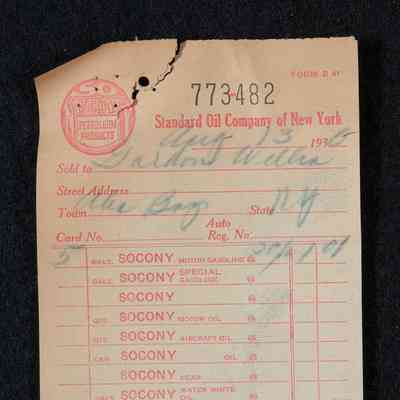 FORM B 4Y
773482
SOCONY
PETROLEUM
PRODUCTS
Standard Oil Company of New York
Aug 13 1936
Sold to Gardon Willia
Street Address
Town Alex Bay State N Y
Card No. Auto Reg. No.
5 GALS. SOCONY MOTOR GASOLINE @ 20 1 01
GALS. SOCONY SPECIAL GASOLINE @
SOCONY @
QTS. SOCONY MOTOR OIL @
QTS. SOCONY AIRCRAFT OIL @
CAN SOCONY OIL @
SOCONY GEAR @
GALS. SOCONY WATER WHITE OIL @